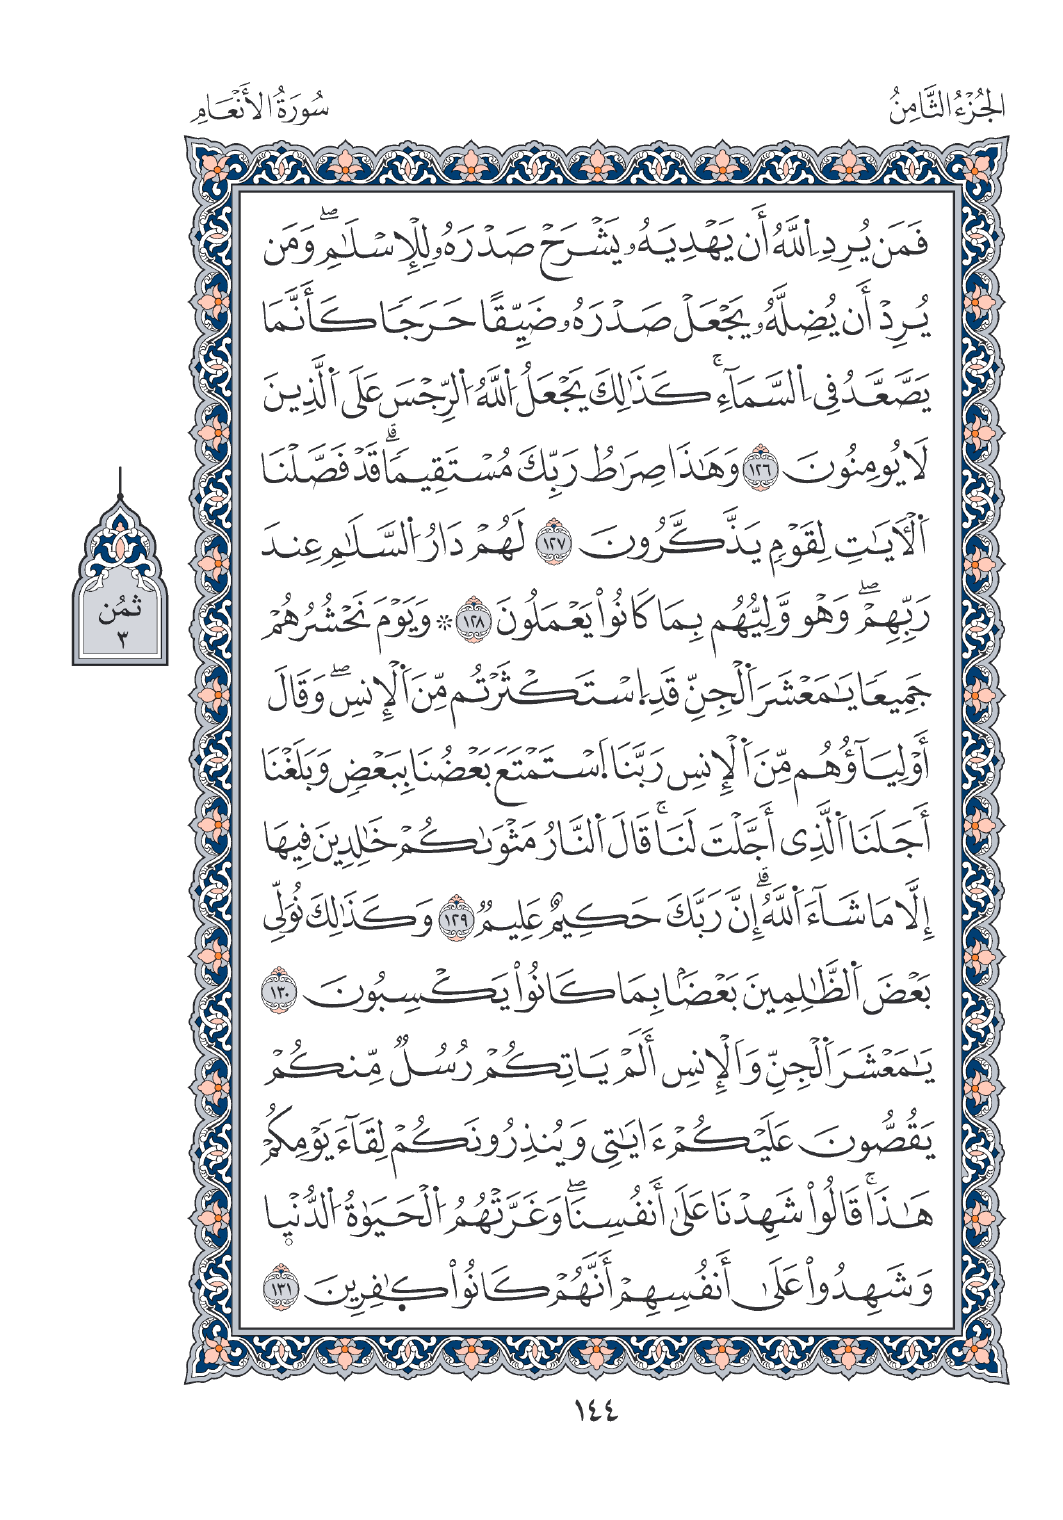 الجُزْءُ الثَّامِنُ
سُورَةُ الأَنْعَامِ
فَمَن يُرِدِ اِ۬للَّهُ أَن يَهْدِيَهُۥ يَشْرَحْ صَدْرَهُۥ لِلِاسْلَٰمِۖ وَمَن
يُرِدْ أَن يُضِلَّهُۥ يَجْعَلْ صَدْرَهُۥ ضَيِّقًا حَرَجَا كَأَنَّمَا
يَصَّعَّدُ فِي اِ۬لسَّمَآءِۚ كَذَٰلِكَ يَجْعَلُ اُ۬للَّهُ اُ۬لرِّجْسَ عَلَى اَ۬لَّذِينَ
لَا يُومِنُونَ ١٢٦ وَهَٰذَا صِرَٰطُ رَبِّكَ مُسْتَقِيمَاۗ قَدْ فَصَّلْنَا
اَ۬لْأٓيَٰتِ لِقَوْمِ يَذَّكَّرُونَ ١٢٧ لَهُمْ دَارُ اُ۬لسَّلَٰمِ عِندَ
رَبِّهِمْۖ وَهْو وَّلِيُّهُم بِمَا كَانُواْ يَعْمَلُونَ ١٢٨ ۞ وَيَوْمَ نَحْشُرُهُمْ
جَمِيعَا يَٰمَعْشَرَ اَ۬لْجِنِّ قَدِ اِ۪سْتَكْثَرْتُم مِّنَ اَ۬لْإِنسِۖ وَقَالَ
أَوْلِيَآؤُهُم مِّنَ اَ۬لْإِنسِ رَبَّنَا اَ۪سْتَمْتَعَ بَعْضُنَا بِبَعْضِ وَبَلَغْنَا
أَجَلَنَا اَ۬لَّذِي أَجَّلْتَ لَنَاۚ قَالَ اَ۬لنَّارُ مَثْوَىٰكُمْ خَٰلِدِينَ فِيهَا
إِلَّا مَا شَآءَ اَ۬للَّهُۗ إِنَّ رَبَّكَ حَكِيمٌ عَلِيمٌ ١٢٩ وَكَذَٰلِكَ نُوَلِّي
بَعْضَ اَ۬لظَّٰلِمِينَ بَعْضَۢا بِمَا كَانُواْ يَكْسِبُونَ ١٣٠
يَٰمَعْشَرَ اَ۬لْجِنِّ وَالْإِنسِ أَلَمْ يَاتِكُمْ رُسُلٌ مِّنكُمْ
يَقُصُّونَ عَلَيْكُمْ ءَايَٰتِي وَيُنذِرُونَكُمْ لِقَآءَ يَوْمِكُمْ
هَٰذَاۚ قَالُواْ شَهِدْنَا عَلَىٰ أَنفُسِنَاۖ وَغَرَّتْهُمُ اُ۬لْحَيَوٰةُ اُ۬لدُّنْيٜا
وَشَهِدُواْ عَلَىٰ أَنفُسِهِمْ أَنَّهُمْ كَانُواْ كٰٜفِرِينَ ١٣١
ثُمُن
٣
١٤٤